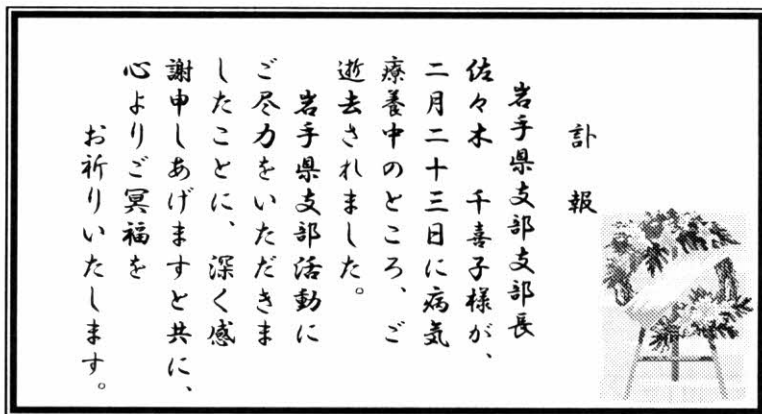 訃報
岩手県支部支部長
佐々木　千喜子様が、
二月二十三日に病気
療養中のところ、ご
逝去されました。
岩手県支部活動に
ご尽力をいただきま
したことに、深く感
謝申しあげますと共に、
心よりご冥福を
お祈りいたします。